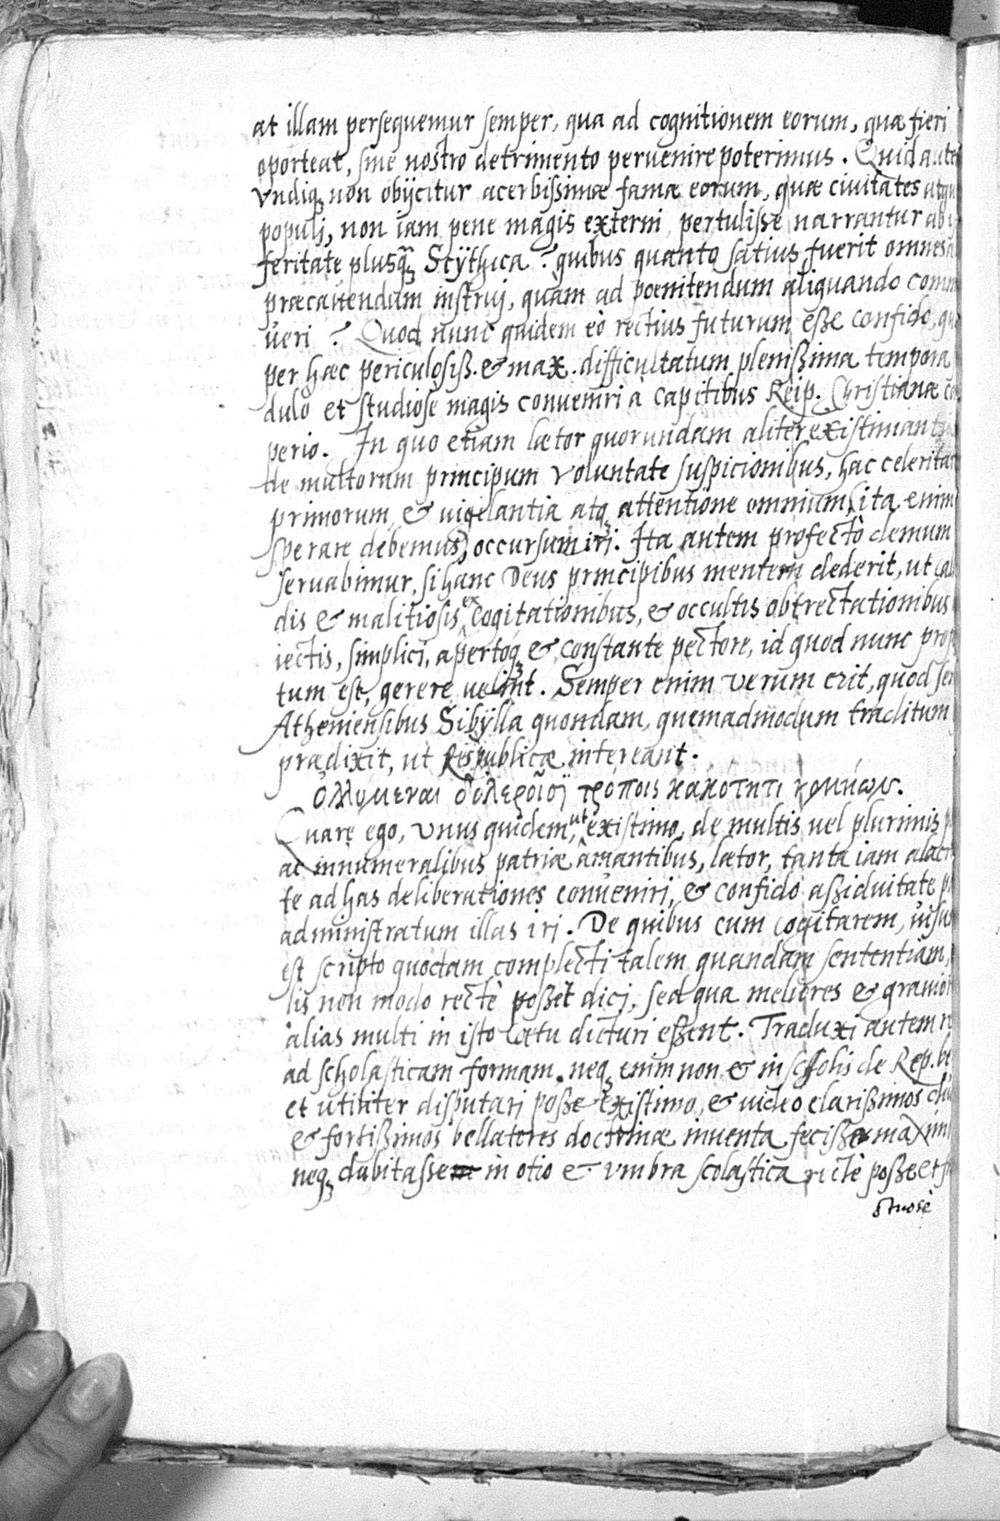 at illam persequemur semper, qua ad cognitionem eorum, quæ fieri
oporteat, sine nostro detrimento peruenire poterimus. Quid aute
vndiq; non obijcitur acerbissimæ famæ eorum, quæ ciuitates atqu
populi, non iam pene magis externi pertulisse narrantur ab
feritate plusq̃ Stÿthica? quibus quanto satius fuerit omnes
præcauendum instrui, quàm ad pœnitendum aliquando comm
ueri? Quod nunc quidem eò rectius futurum esse confido, qu
per hæc periculosiss. & max. difficultatum plenissima tempora
dulo et studiose magis conueniri a capitibus Reip. Christianæ
perio. In quo etiam lætor quorundam aliter existimant
de multorum principum voluntate suspicionibus, hac celeritat
primorum & uigilantia atq; attentione omnium (ita enim
sperare debemus) occursum iri. Ita autem profectò demum
seruabimur, si hanc Deus principibus mentem dederit, ut cal
dis & malitiosis cogitationibus, & occultis obtrectationibus
iectis, simplici, apertoq; & constante pectore, id quod nunc prop
tum est, gerere uelint. Semper enim verum erit, quod
Atheniensibus Sibÿlla quondam, quemadmodum traditum
prædixit, ut Respublicæ intereant.
Ὀλλύμεναι δολεροῖσι τρόποις κακότητι
Quare ego, vnus quidem, ut existimo, de multis uel plurimis
ac innumeralibus patriæ amantibus, lætor, tanta iam alacri
te ad has deliberationes conueniri, & confido assiduitate
administratum illas iri. De quibus cum cogitarem, uisu
est scripto quodam complecti talem quandam sententiam,
lis non modo rectè posset dici, sed qua meliores & grauior
alias multi in isto cœtu dicturi essent. Traduxi autem
ad scholasticam formam. neq; enim non & in scholis de Rep. be
et utiliter disputari posse existimo, & uideo clarissimos
& fortissimos bellatores doctrinæ inuenta fecisse maximi
neq; dubitasse in otio & vmbra scolastica rectè posse et
struosè